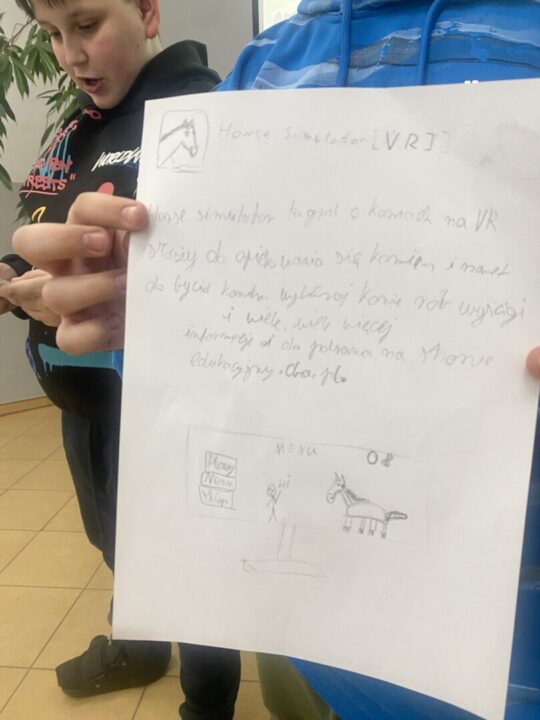 Horse Simulator [VR]
Horse simulator to gra o koniach na VR
służy do opiekowania się koniem i nawet
do bycia koniem. wybieraj konie rób wyścigi
i wiele, wiele więcej
informacje i do pobrania na stronie
edukacyjny.cba.pl.
MENU
Menu
Sklep
Hi